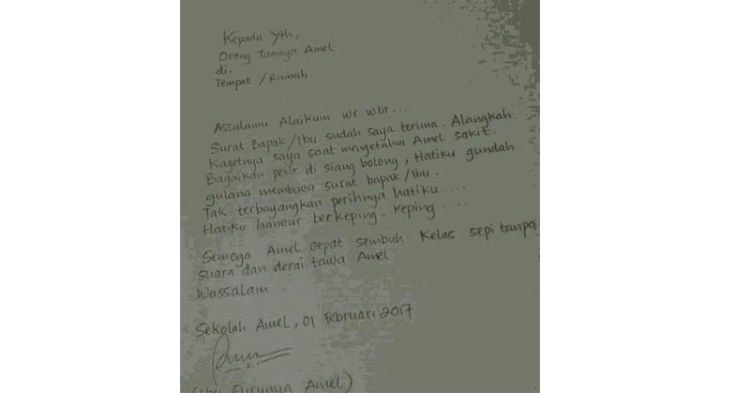 Kepada Yth,
Orang Tuanya Amel
di.
Tempat / Rumah
Assalamu Alaikum wr wbr...
Surat Bapak/Ibu sudah saya terima. Alangkah
Kagetnya saya saat mengetahui Amel sakit.
Bagaikan petir di siang bolong, Hatiku gundah
gulana membaca surat bapak/Ibu.
Tak terbayangkan perihnya hatiku....
Hatiku hancur berkeping-keping....
Semoga Amel cepat sembuh. Kelas sepi tanpa
suara dan derai tawa Amel
Wassalam
Sekolah Amel, 01 Februari 2017
(Ibu Gurunya Amel)